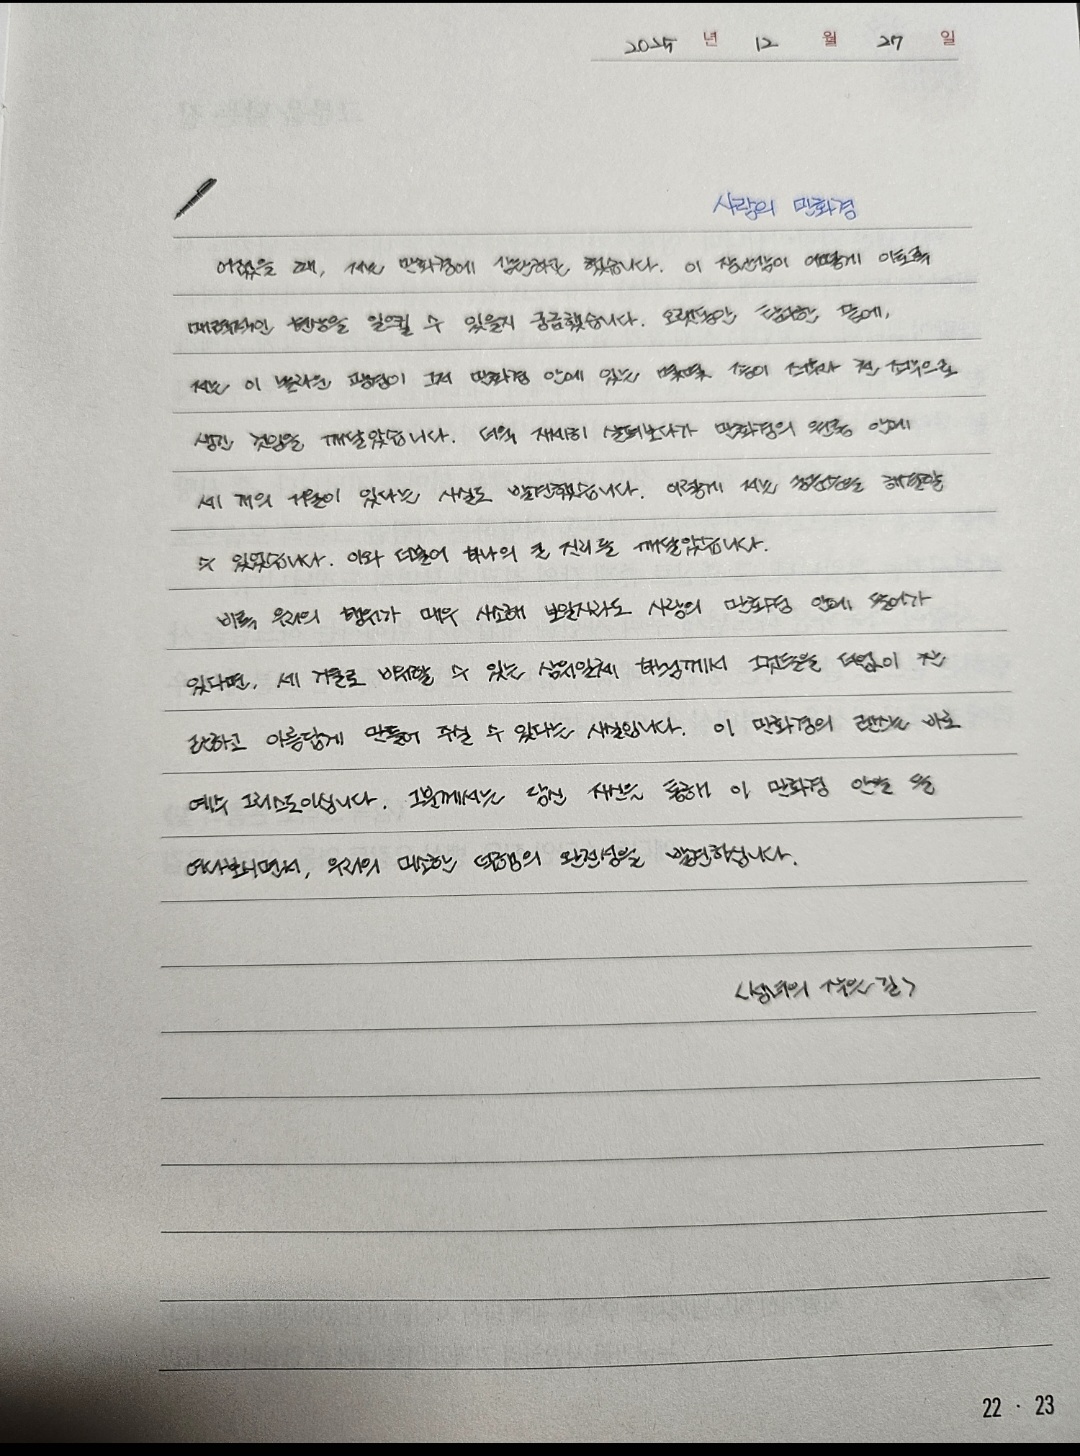 2025 년 12 월 27 일
사랑의 만화경
어렸을 때, 저는 만화경에 감탄하곤 했습니다. 이 장난감이 어떻게 이토록
매력적인 현상을 일으킬 수 있을지 궁금했습니다. 오랫동안 탐험한 끝에,
저는 이 놀라운 광경이 그저 만화경 안에 있는 몇몇 종이 조각과 천 조각으로
생긴 것임을 깨달았습니다. 더욱 자세히 살펴보다가 만화경의 원통 안에
세 개의 거울이 있다는 사실도 발견했습니다. 이렇게 저는 궁금증을 해결할
수 있었습니다. 이와 더불어 하나의 큰 진리를 깨달았습니다.
비록 우리의 행위가 매우 사소해 보일지라도 사랑의 만화경 안에 들어가
있다면, 세 거울로 비유할 수 있는 삼위일체 하느님께서 그것들을 더없이 찬
란하고 아름답게 만들어 주실 수 있다는 사실입니다. 이 만화경의 렌즈는 바로
예수 그리스도이십니다. 그분께서는 당신 자신을 통해 이 만화경 안을 들
여다보시면서, 우리의 미소한 덕행의 완전성을 발견하십니다.
<성녀의 작은 길>
22 · 23